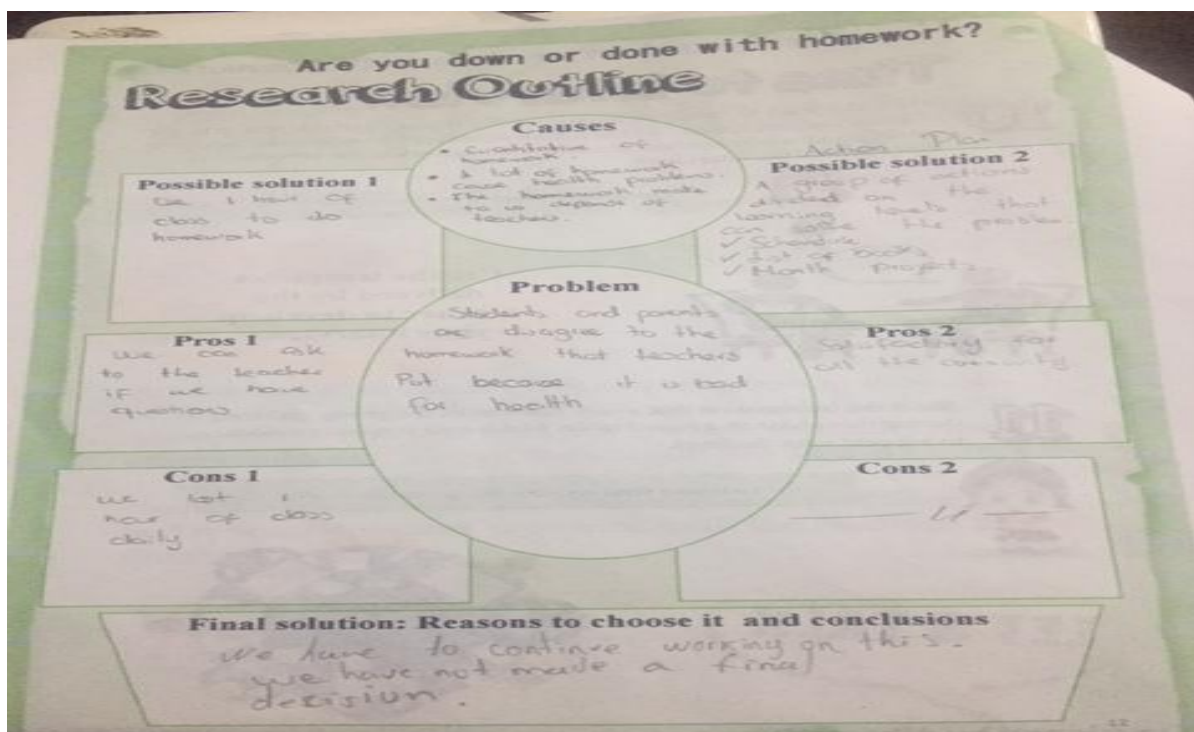 Are you down or done with homework?
Research Outline
Causes
• of
homework.
• A lot of homework
cause health problems.
• The homework make
to us depends of
teachers.
Possible solution 1
Use 1 hour of
class to do
homework
Action Plan
Possible solution 2
A group of actions
divided on the
learning levels that
can solve the problem
✓ Schedule
✓ List of books
✓ Month projects
Problem
Students and parents
are disagree to the
homework that teachers
Put because it is bad
for health
Pros 1
We can ask
to the teacher
if we have
questions
Pros 2
Satisfactory for
all the community.
Cons 1
we lost 1
hour of class
daily
Cons 2
Final solution: Reasons to choose it and conclusions
We have to continue working on this.
we have not made a final
decision.
12